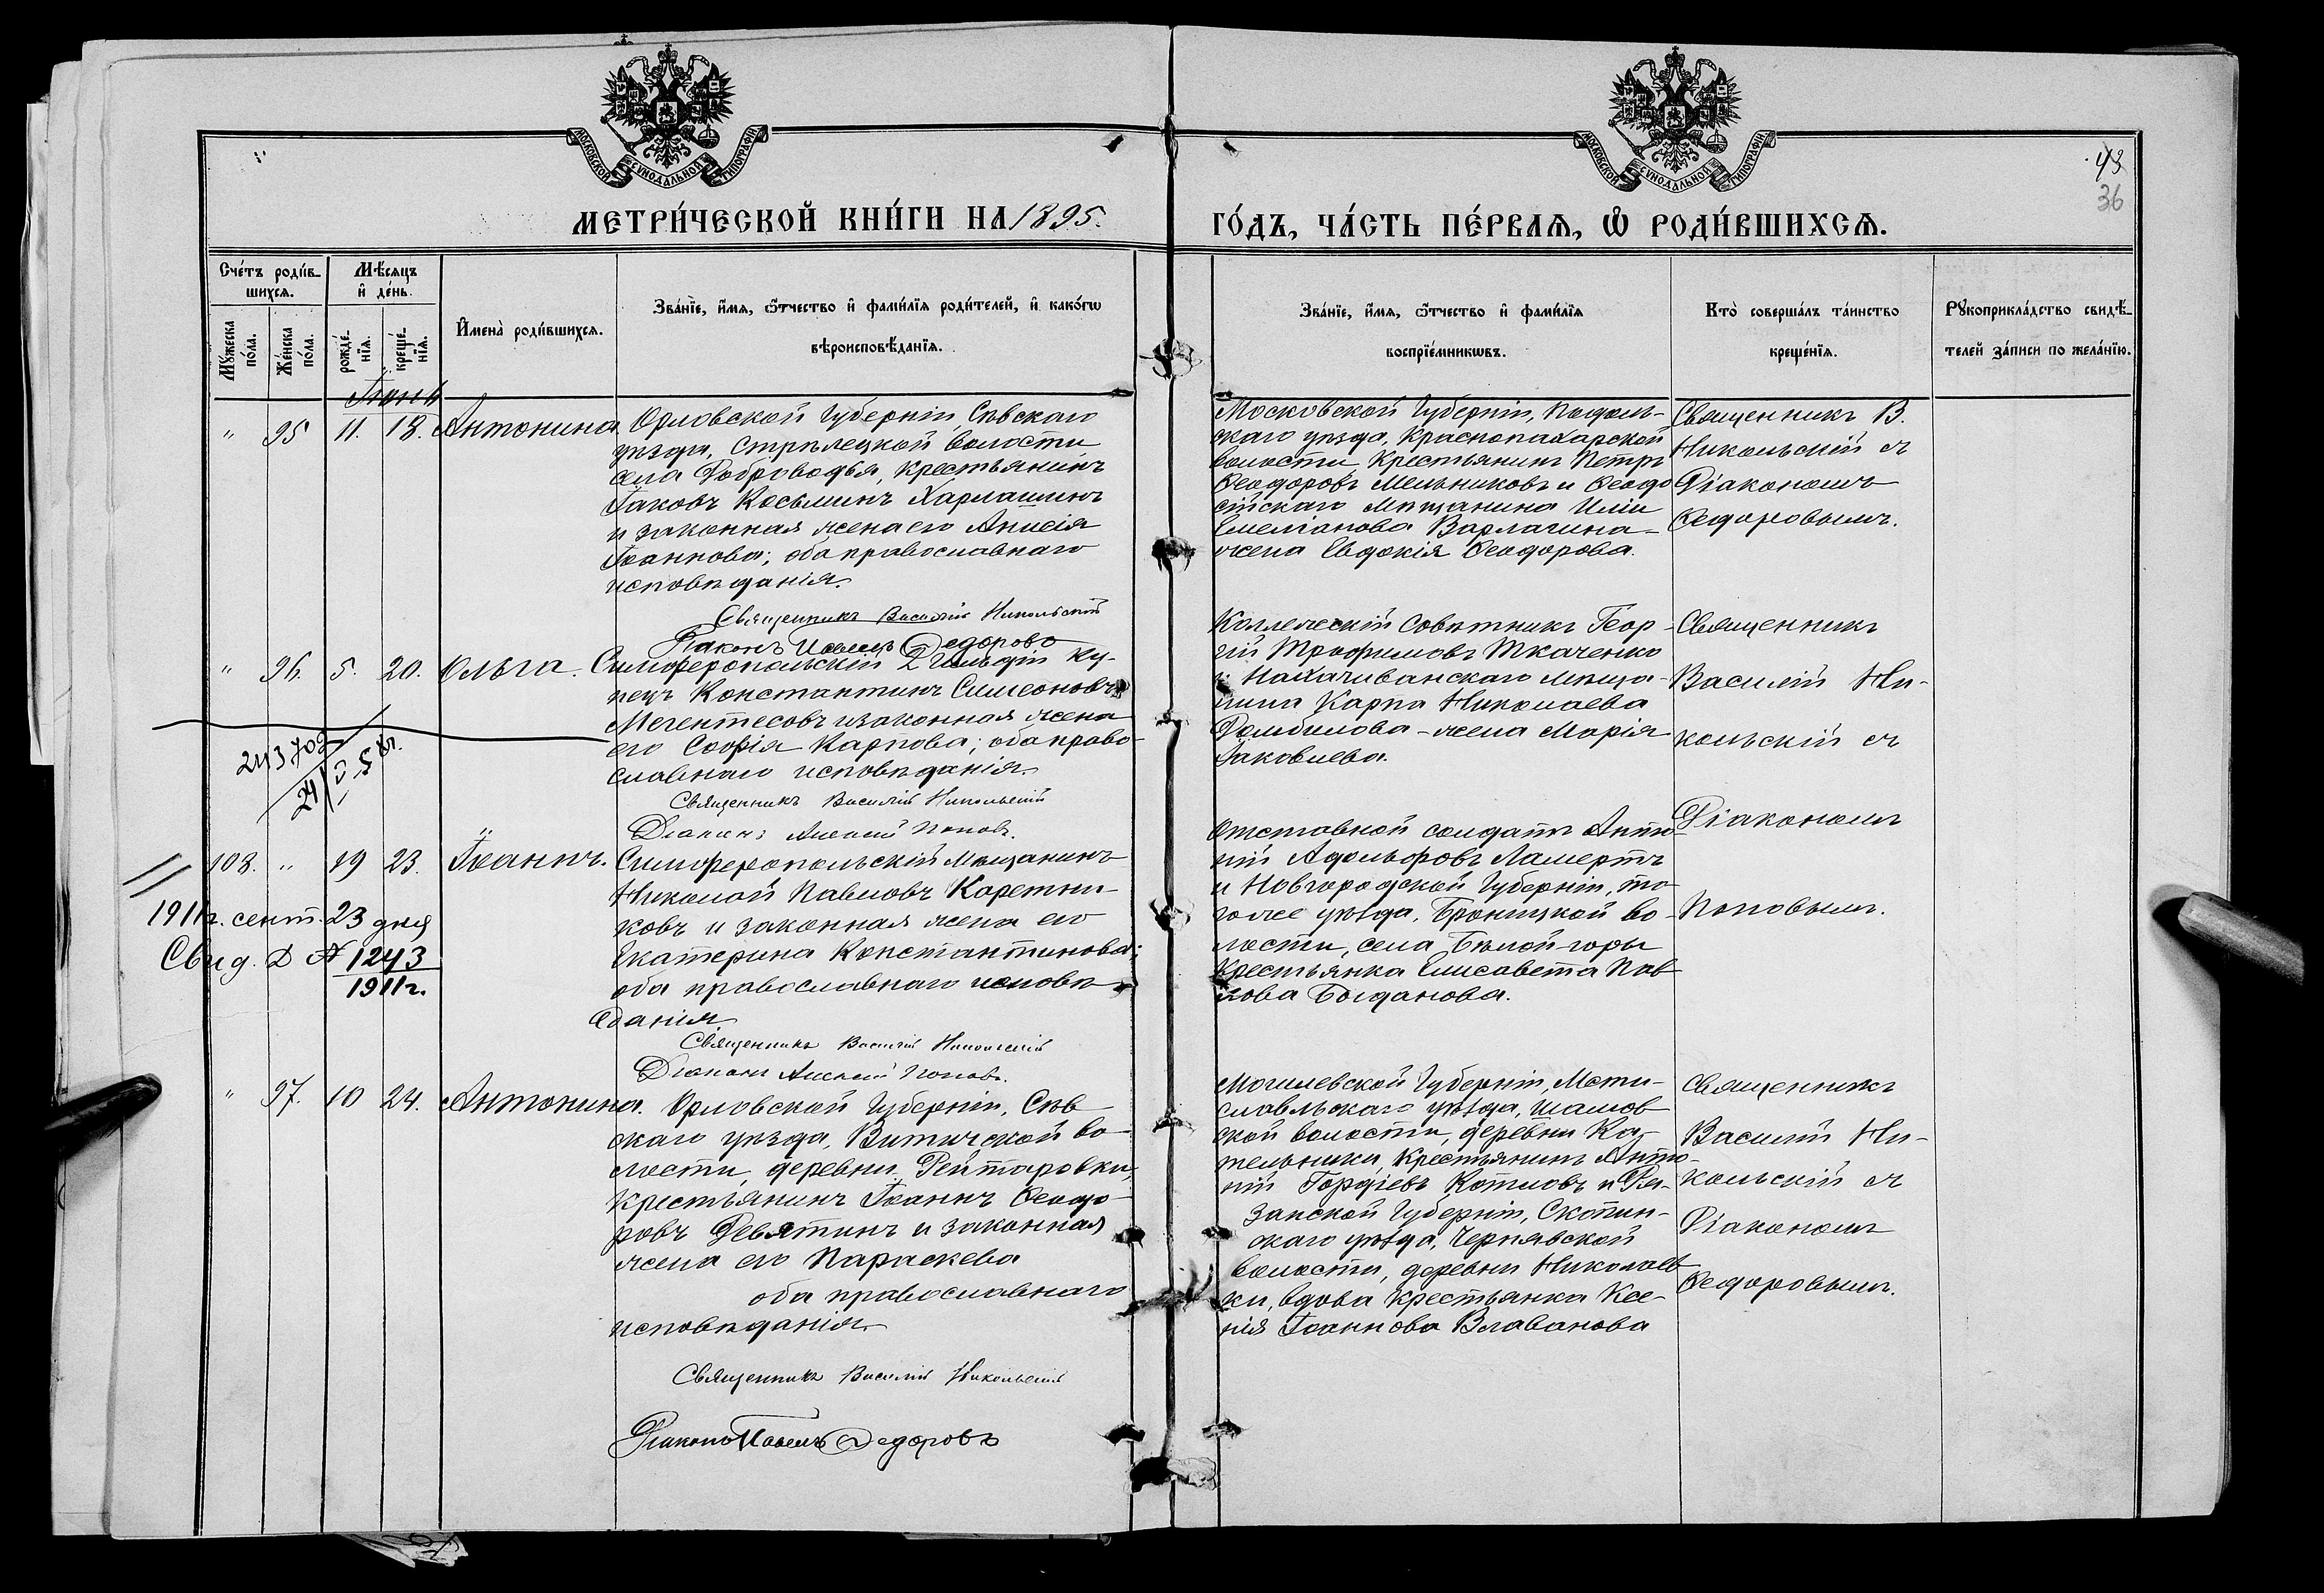 МОСКОВСКОЙ СѴНОДАЛЬНОЙ ТИПОГРАФІИ
МОСКОВСКОЙ СѴНОДАЛЬНОЙ ТИПОГРАФІИ
43
36
МЕТРИ́ЧЕСКОЙ КНИ́ГИ НА 1895.
ГО́ДЪ, ЧА́СТЬ ПЕ́РВАѦ, Ѡ҆ РОДИ́ВШИХСѦ.
Сче́тъ роди́в-
шихсѧ.
Мѣ́сѧцъ
и҆ де́нь.
Мꙋ́жеска
по́ла.
Же́нска
по́ла.
рожде́-
нїѧ.
креще́-
нїѧ.
И҆мена̀ роди́вшихсѧ.
Зва́нїе, и҆́мѧ, ѻ҆́тчество и҆ фами́лїѧ роди́телей, и҆ како́гѡ
вѣроисповѣ́данїѧ.
Зва́нїе, и҆́мѧ, ѻ҆́тчество и҆ фами́лїѧ
воспрїе́мникѡвъ.
Кто̀ соверша́лъ та́инство
креще́нїѧ.
Рꙋкоприкла́дство свидѣ́-
телей за́писи по жела́нїю.
Іюнь
" 95 11. 18. Антонина
Орловской Губерніи, Сѣвскаго
уѣзда, Стрѣлецкой волости
села Доброводья, крестьянинъ
Іаковъ Косьминъ Харлашинъ
и законная жена его Анисія
Іоаннова; оба православнаго
исповѣданія.
Священникъ Василій Никольскій
Діаконъ Павелъ Федоровъ
Московской Губерніи, Подоль-
скаго уѣзда, Краснопахарской
волости крестьянинъ Петръ
Ѳеодоровъ Мельниковъ и Ѳеодо
сійскаго мѣщанина Иліи
Емеліанова Варлагина-
жена Евдокія Ѳеодорова.
Священникъ В.
Никольскій съ
Діакономъ
Ѳедоровымъ.
" 96. 5. 20. Ольга.
Симферопольскій 2 Гильдіи ку-
пецъ Константинъ Симеоновъ
Мегентесовъ и законная жена
его Софія Карпова; оба право-
славнаго исповѣданія.
Священникъ Василій Никольскій
Діаконъ Алексій Поповъ.
Коллежскій Совѣтникъ Геор-
гій Трофимовъ Ткаченко
и Нахичиванскаго мѣща-
нина Карпа Николаева
Домбилова - жена Марія
Іаковлева.
Священникъ
Василій Ни-
кольскій съ
Діакономъ
Поповымъ.
243702
108. " 19 23. Іоаннъ.
Симферопольскій мѣщанинъ
Николай Павловъ Каретни-
ковъ и законная жена его
Екатерина Константинова;
оба православнаго исповѣ-
данія
Священникъ Василій Никольскій
Діаконъ Алексій Поповъ.
Отставной солдатъ Анто-
ній Адольфовъ Ламертъ
и Новгородской Губерніи, то-
гоже уѣзда, Бронницкой во-
лости, села Бѣлой-горы
крестьянка Елисавета Пав-
лова Богданова.
1911 г. сент. 23 дня
Свид. Д № 1243
1911 г.
" 97. 10 24. Антонина.
Орловской Губерніи, Сѣв-
скаго уѣзда, Витичской во-
лости, деревни Рейтаровки,
крестьянинъ Іоаннъ Ѳеодо-
ровъ Девятинъ и законная
жена его Параскева
оба православнаго
исповѣданія.
Священникъ Василій Никольскій
Діаконъ Павелъ Федоровъ
Могилевской Губерніи, Мсти-
славльскаго уѣзда, Шамов-
ской волости, деревни Ко-
тельники, крестьянинъ Анто-
ній Гордіевъ Котловъ и Ря-
занской Губерніи, Скопин-
скаго уѣзда, Чернявской
волости, деревни Николаев-
ки, вдова крестьянка Ксе-
нія Іоаннова Влаванова
Священникъ
Василій Ни-
кольскій съ
Діакономъ
Ѳедоровымъ.